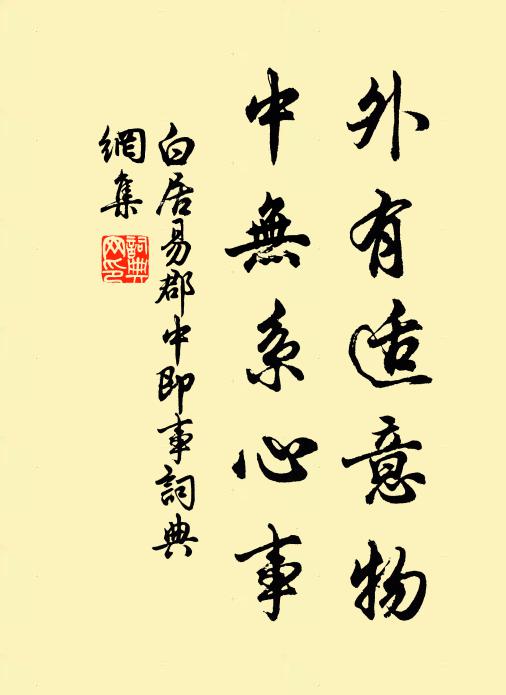 外有适意物
中無系心事
白居易郡中即事詞典
網集
詞典網印